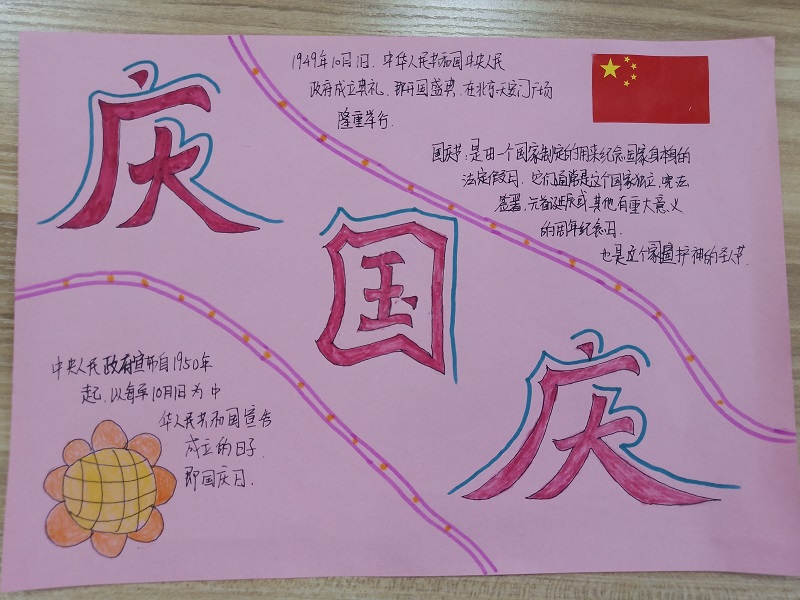 庆
国
庆
1949年10月1日,中华人民共和国中央人民
政府成立典礼,即开国盛典,在北京天安门广场
隆重举行.
国庆节:是由一个国家制定的用来纪念国家的
法定假日.它们通常是这个国家独立,宪法
签署,元首诞辰或其他有重大意义
的周年纪念日.
也是这个护神的圣人节.
中央人民政府宣布自1950年
起,以每年10月1日为中
华人民共和国宣告
成立的日子.
即国庆日.